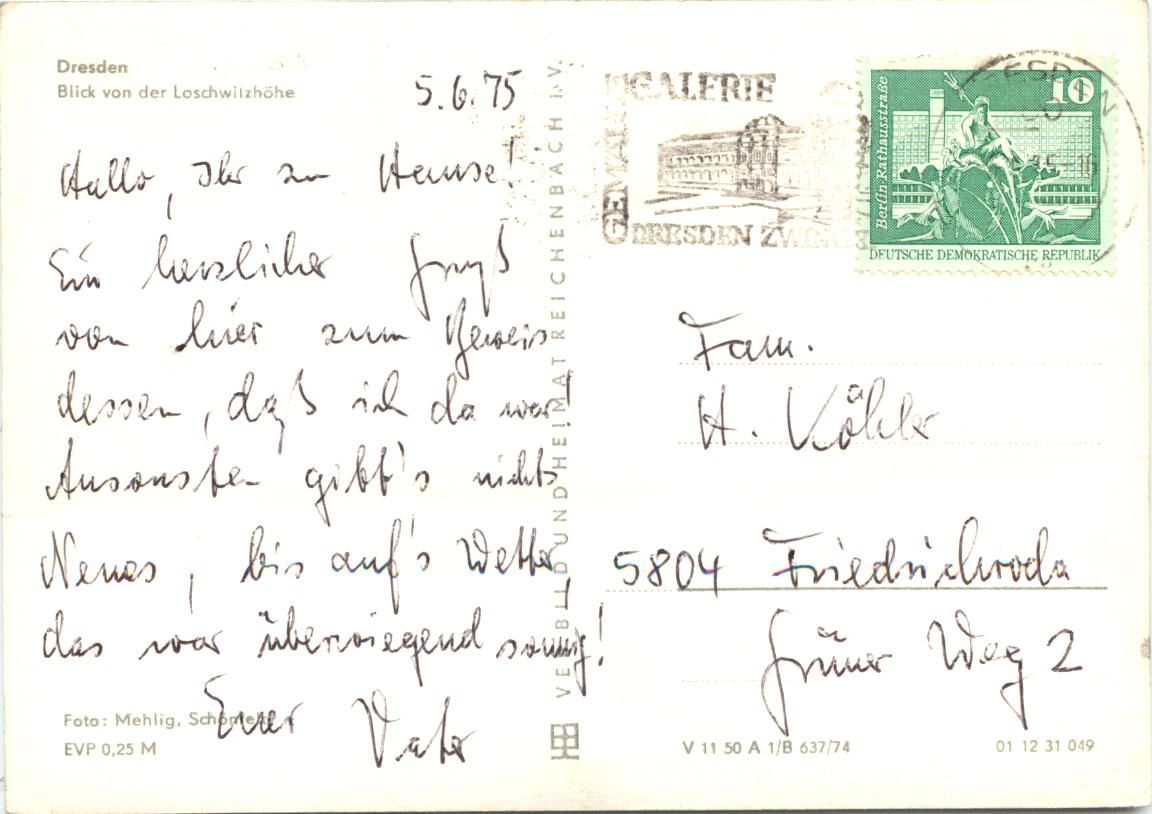 Dresden
Blick von der Loschwitzhöhe
5.6.75
Hallo, Ihr zu Hause!
Ein herzlicher Gruß
von hier zum Beweis
dessen, daß ich da war!
Ansonsten gibt's nichts
Neues, bis auf's Wetter,
das war überwiegend sonnig!
Euer Vater
Foto: Mehlig,
EVP 0,25 M
VEB BILD UND HEIMAT REICHENBACH I. V.
GEMÄLDEGALERIE
DRESDEN ZWINGER
15-16
10
Berlin-Rathausstraße
DEUTSCHE DEMOKRATISCHE REPUBLIK
Fam.
H. Köhler
5804 Friedrichroda
Grüner Weg 2
V 11 50 A 1/B 637/74
01 12 31 049